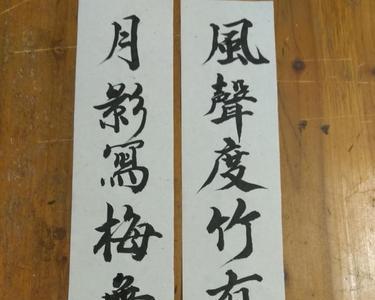 風聲度竹有
月影寫梅無